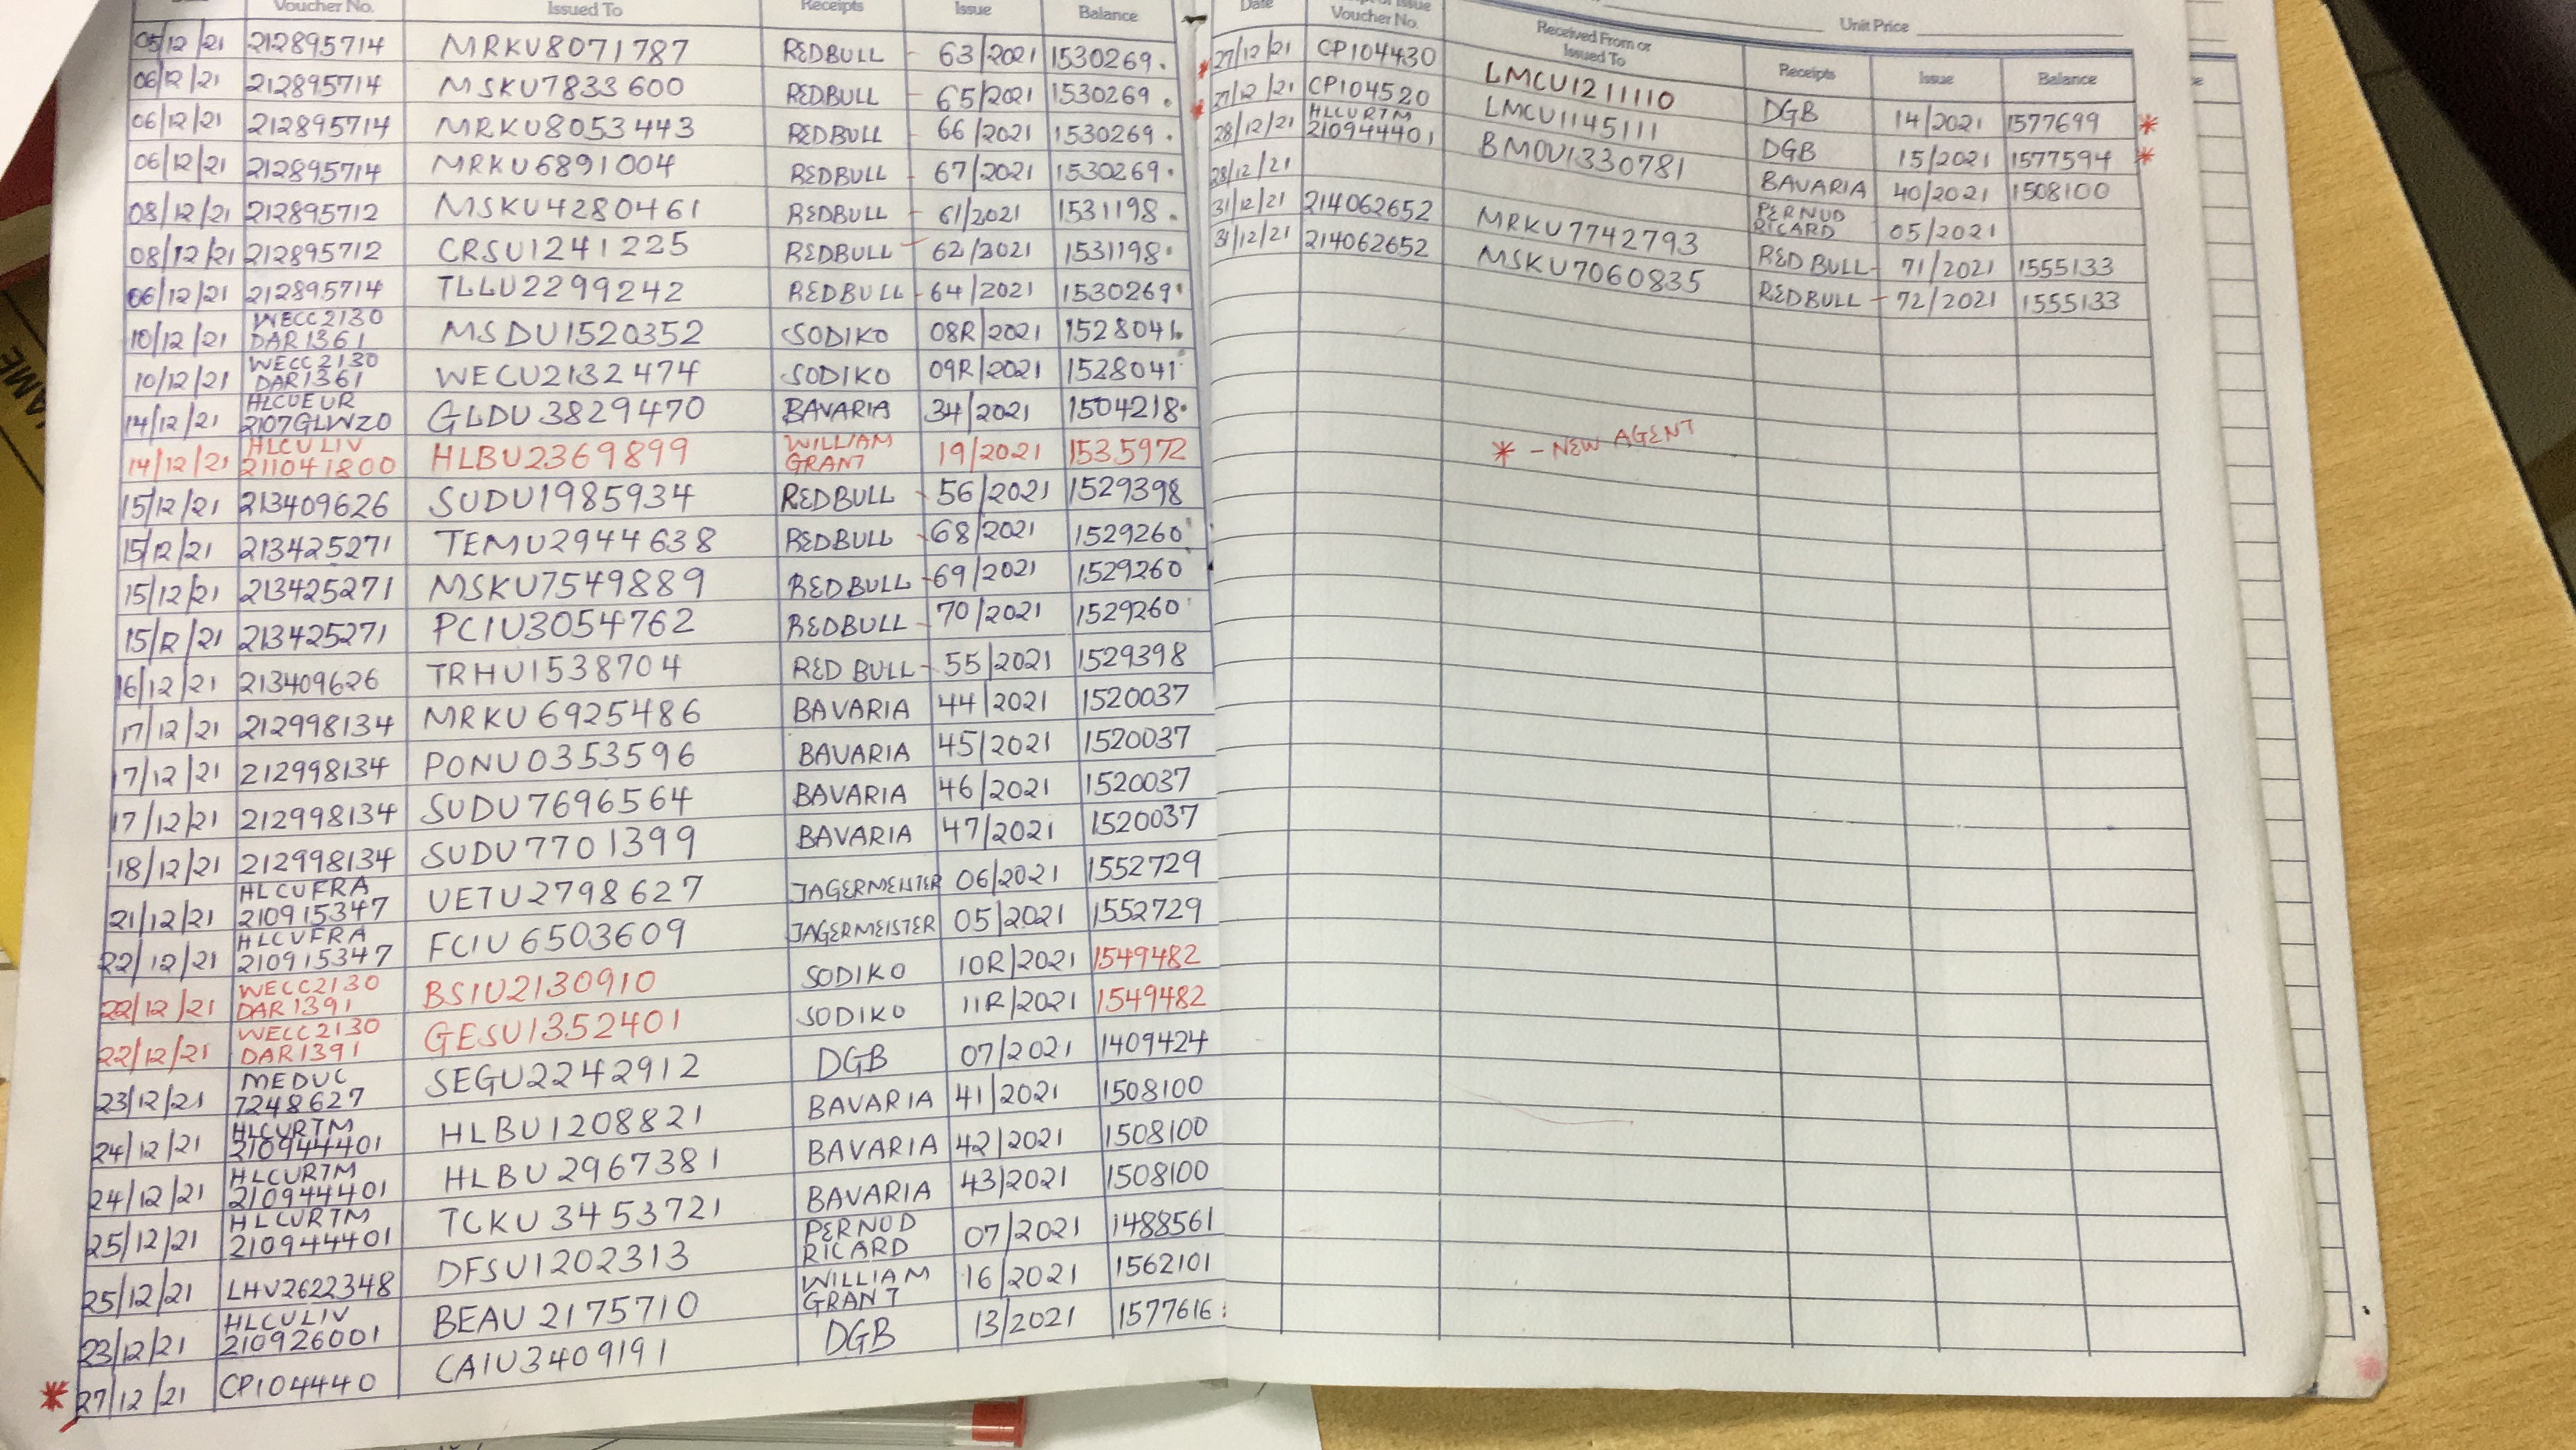 Voucher No. Issued To Receipts Issue Balance
05/12/21 212895714 MRKU8071787 REDBULL - 63/2021 1530269.
06/12/21 212895714 MSKU7833600 REDBULL - 65/2021 1530269.
06/12/21 212895714 MRKU8053443 REDBULL - 66/2021 1530269.
06/12/21 212895714 MRKU6891004 REDBULL - 67/2021 1530269.
08/12/21 212895712 MSKU4280461 REDBULL - 61/2021 1531198.
08/12/21 212895712 CRSU1241225 REDBULL - 62/2021 1531198.
06/12/21 212895714 TLLU2299242 REDBULL - 64/2021 1530269.
10/12/21 WECC2130 DAR1361 MSDU1520352 SODIKO 08R/2021 1528041.
10/12/21 WECC2130 DAR1361 WECU2132474 SODIKO 09R/2021 1528041.
14/12/21 HLCUEUR 2107GLWZ0 GLDU3829470 BAVARIA 34/2021 1504218.
14/12/21 HLCULIV 211041800 HLBU2369899 WILLIAM GRANT 19/2021 1535972
15/12/21 213409626 SUDU1985934 REDBULL - 56/2021 1529398
15/12/21 213425271 TEMU2944638 REDBULL - 68/2021 1529260
15/12/21 213425271 MSKU7549889 REDBULL - 69/2021 1529260
15/12/21 213425271 PCIU3054762 REDBULL - 70/2021 1529260
16/12/21 213409626 TRHU1538704 RED BULL - 55/2021 1529398
17/12/21 212998134 MRKU6925486 BAVARIA 44/2021 1520037
17/12/21 212998134 PONU0353596 BAVARIA 45/2021 1520037
17/12/21 212998134 SUDU7696564 BAVARIA 46/2021 1520037
18/12/21 212998134 SUDU7701399 BAVARIA 47/2021 1520037
21/12/21 HLCUFRA 210915347 UETU2798627 JAGERMEISTER 06/2021 1552729
22/12/21 HLCUFRA 210915347 FCIU6503609 JAGERMEISTER 05/2021 1552729
22/12/21 WECC2130 DAR1391 BSIU2130910 SODIKO 10R/2021 1549482
22/12/21 WECC2130 DAR1391 GESU1352401 SODIKO 11R/2021 1549482
23/12/21 MEDUC 7248627 SEGU2242912 DGB 07/2021 1409424
24/12/21 HLCURTM 210944401 HLBU1208821 BAVARIA 41/2021 1508100
24/12/21 HLCURTM 210944401 HLBU2967381 BAVARIA 42/2021 1508100
25/12/21 HLCURTM 210944401 TCKU3453721 BAVARIA 43/2021 1508100
25/12/21 LHV2622348 DFSU1202313 PERNOD RICARD 07/2021 1488561
23/12/21 HLCULIV 210926001 BEAU2175710 WILLIAM GRANT 16/2021 1562101
* 27/12/21 CP104440 CAIU3409191 DGB 13/2021 1577616
Unit Price
Date Voucher No. Received From or Issued To Receipts Issue Balance
* 27/12/21 CP104430 LMCU1211110 DGB 14/2021 1577699 *
* 27/12/21 CP104520 LMCU1145111 DGB 15/2021 1577594 *
28/12/21 HLCURTM 210944401 BMOU1330781 BAVARIA 40/2021 1508100
28/12/21 PERNOD RICARD 05/2021
31/12/21 214062652 MRKU7742793 RED BULL - 71/2021 1555133
31/12/21 214062652 MSKU7060835 REDBULL - 72/2021 1555133
* - NEW AGENT